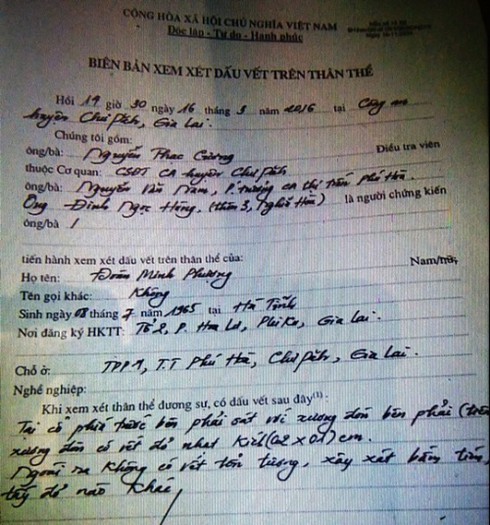 CỘNG HÒA XÃ HỘI CHỦ NGHĨA VIỆT NAM
Độc lập - Tự do - Hạnh phúc
BIÊN BẢN XEM XÉT DẤU VẾT TRÊN THÂN THỂ
Hồi 19 giờ 30 ngày 16 tháng 3 năm 2016 tại Công an
huyện Chư Păh, Gia Lai.
Chúng tôi gồm:
ông/bà: Nguyễn Cường Điều tra viên
thuộc Cơ quan: CSĐT CA huyện Chư Păh
ông/bà: Nguyễn Văn Nam, P. trưởng CA thị trấn Phú Hòa.
Ông Đinh Ngọc Hồng, (thôn 3, Nghĩa Hòa) là người chứng kiến
ông/bà /
tiến hành xem xét dấu vết trên thân thể của:
Họ tên: Đoàn Minh Phượng Nam/nữ,
Tên gọi khác: Không
Sinh ngày 08 tháng 7 năm 1965 tại Hà Tĩnh
Nơi đăng ký HKTT: Tổ 2, P. Hoa Lư, Pleiku, Gia Lai.
Chỗ ở: TDP 1, T.T Phú Hòa, Chư Păh, Gia Lai.
Nghề nghiệp:
Khi xem xét thân thể đương sự, có dấu vết sau đây(1):
Tại cổ phía trước bên phải sát với xương đòn bên phải (trên
xương đòn có vết đỏ nhạt KT(0,2 x 0,1)cm.
Ngoài ra không có vết tổn thương, xây xát bầm tím,
tấy đỏ nào khác,